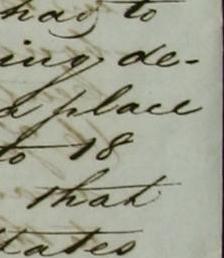 had to
ing de-
a place
to 18
that
tates